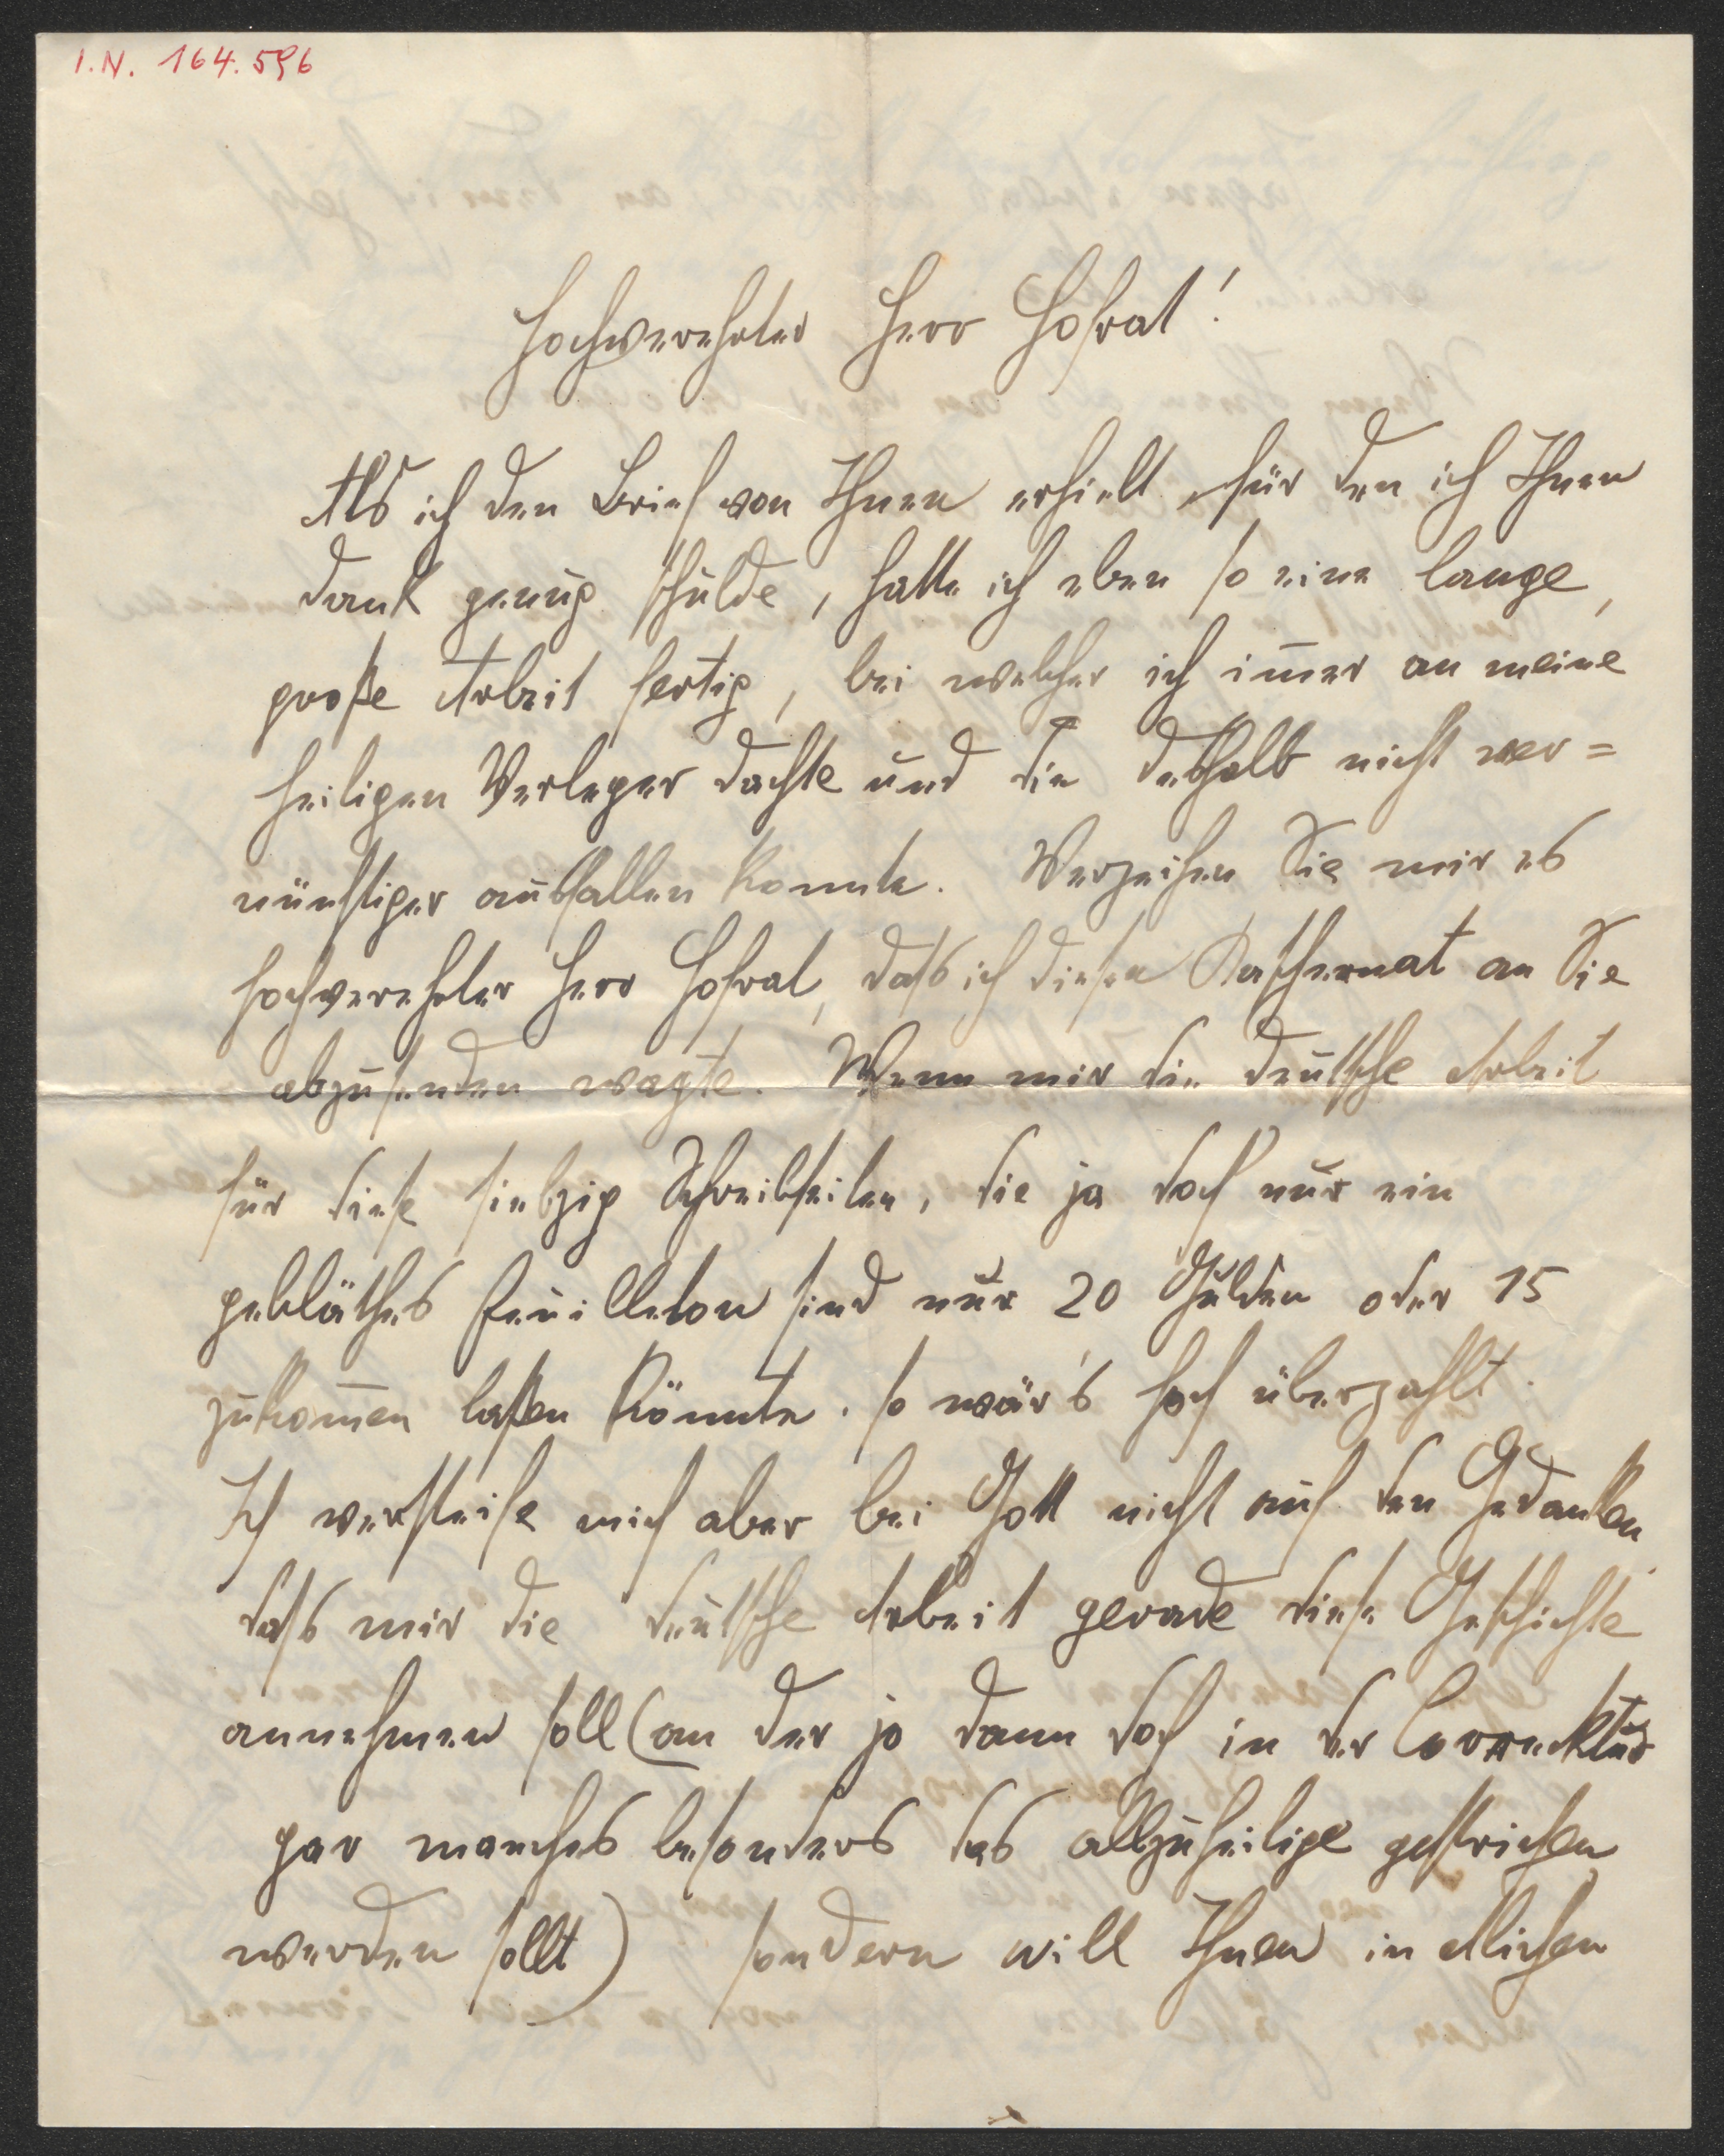 I.N. 164.596
Hochverehrter Herr Hofrat!
Als ich den Brief von Ihnen erhielt, für den ich Ihnen
Dank genug schulde, hatte ich eben so eine lange,
große Arbeit fertig, bei welcher ich im̄er an meine
heiligen Verleger dachte und die deßhalb nicht ver=
nünftiger ausfallen konnte. Verzeihen Sie mir es
hochverehrter Herr Hofrat, dass ich diesen an Sie
abzusenden wagte. Wenn mir die deutsche Arbeit
für diese siebzig Schreibseiten, die ja doch nur ein
geblähtes Feuilleton sind nur 20 Gulden oder 15
zukom̄en laßen könnte. so wär's hoch überzahlt.
Ich versteife mich aber bei Gott nicht auf den Gedanken,
dass mir die deutsche Arbeit gerade diese Geschichte
annehmen soll (an der ja dann doch in der Correcktur
gar manches besonders das allzuheilige gestrichen
werden sollt) sondern will Ihnen in etlichen